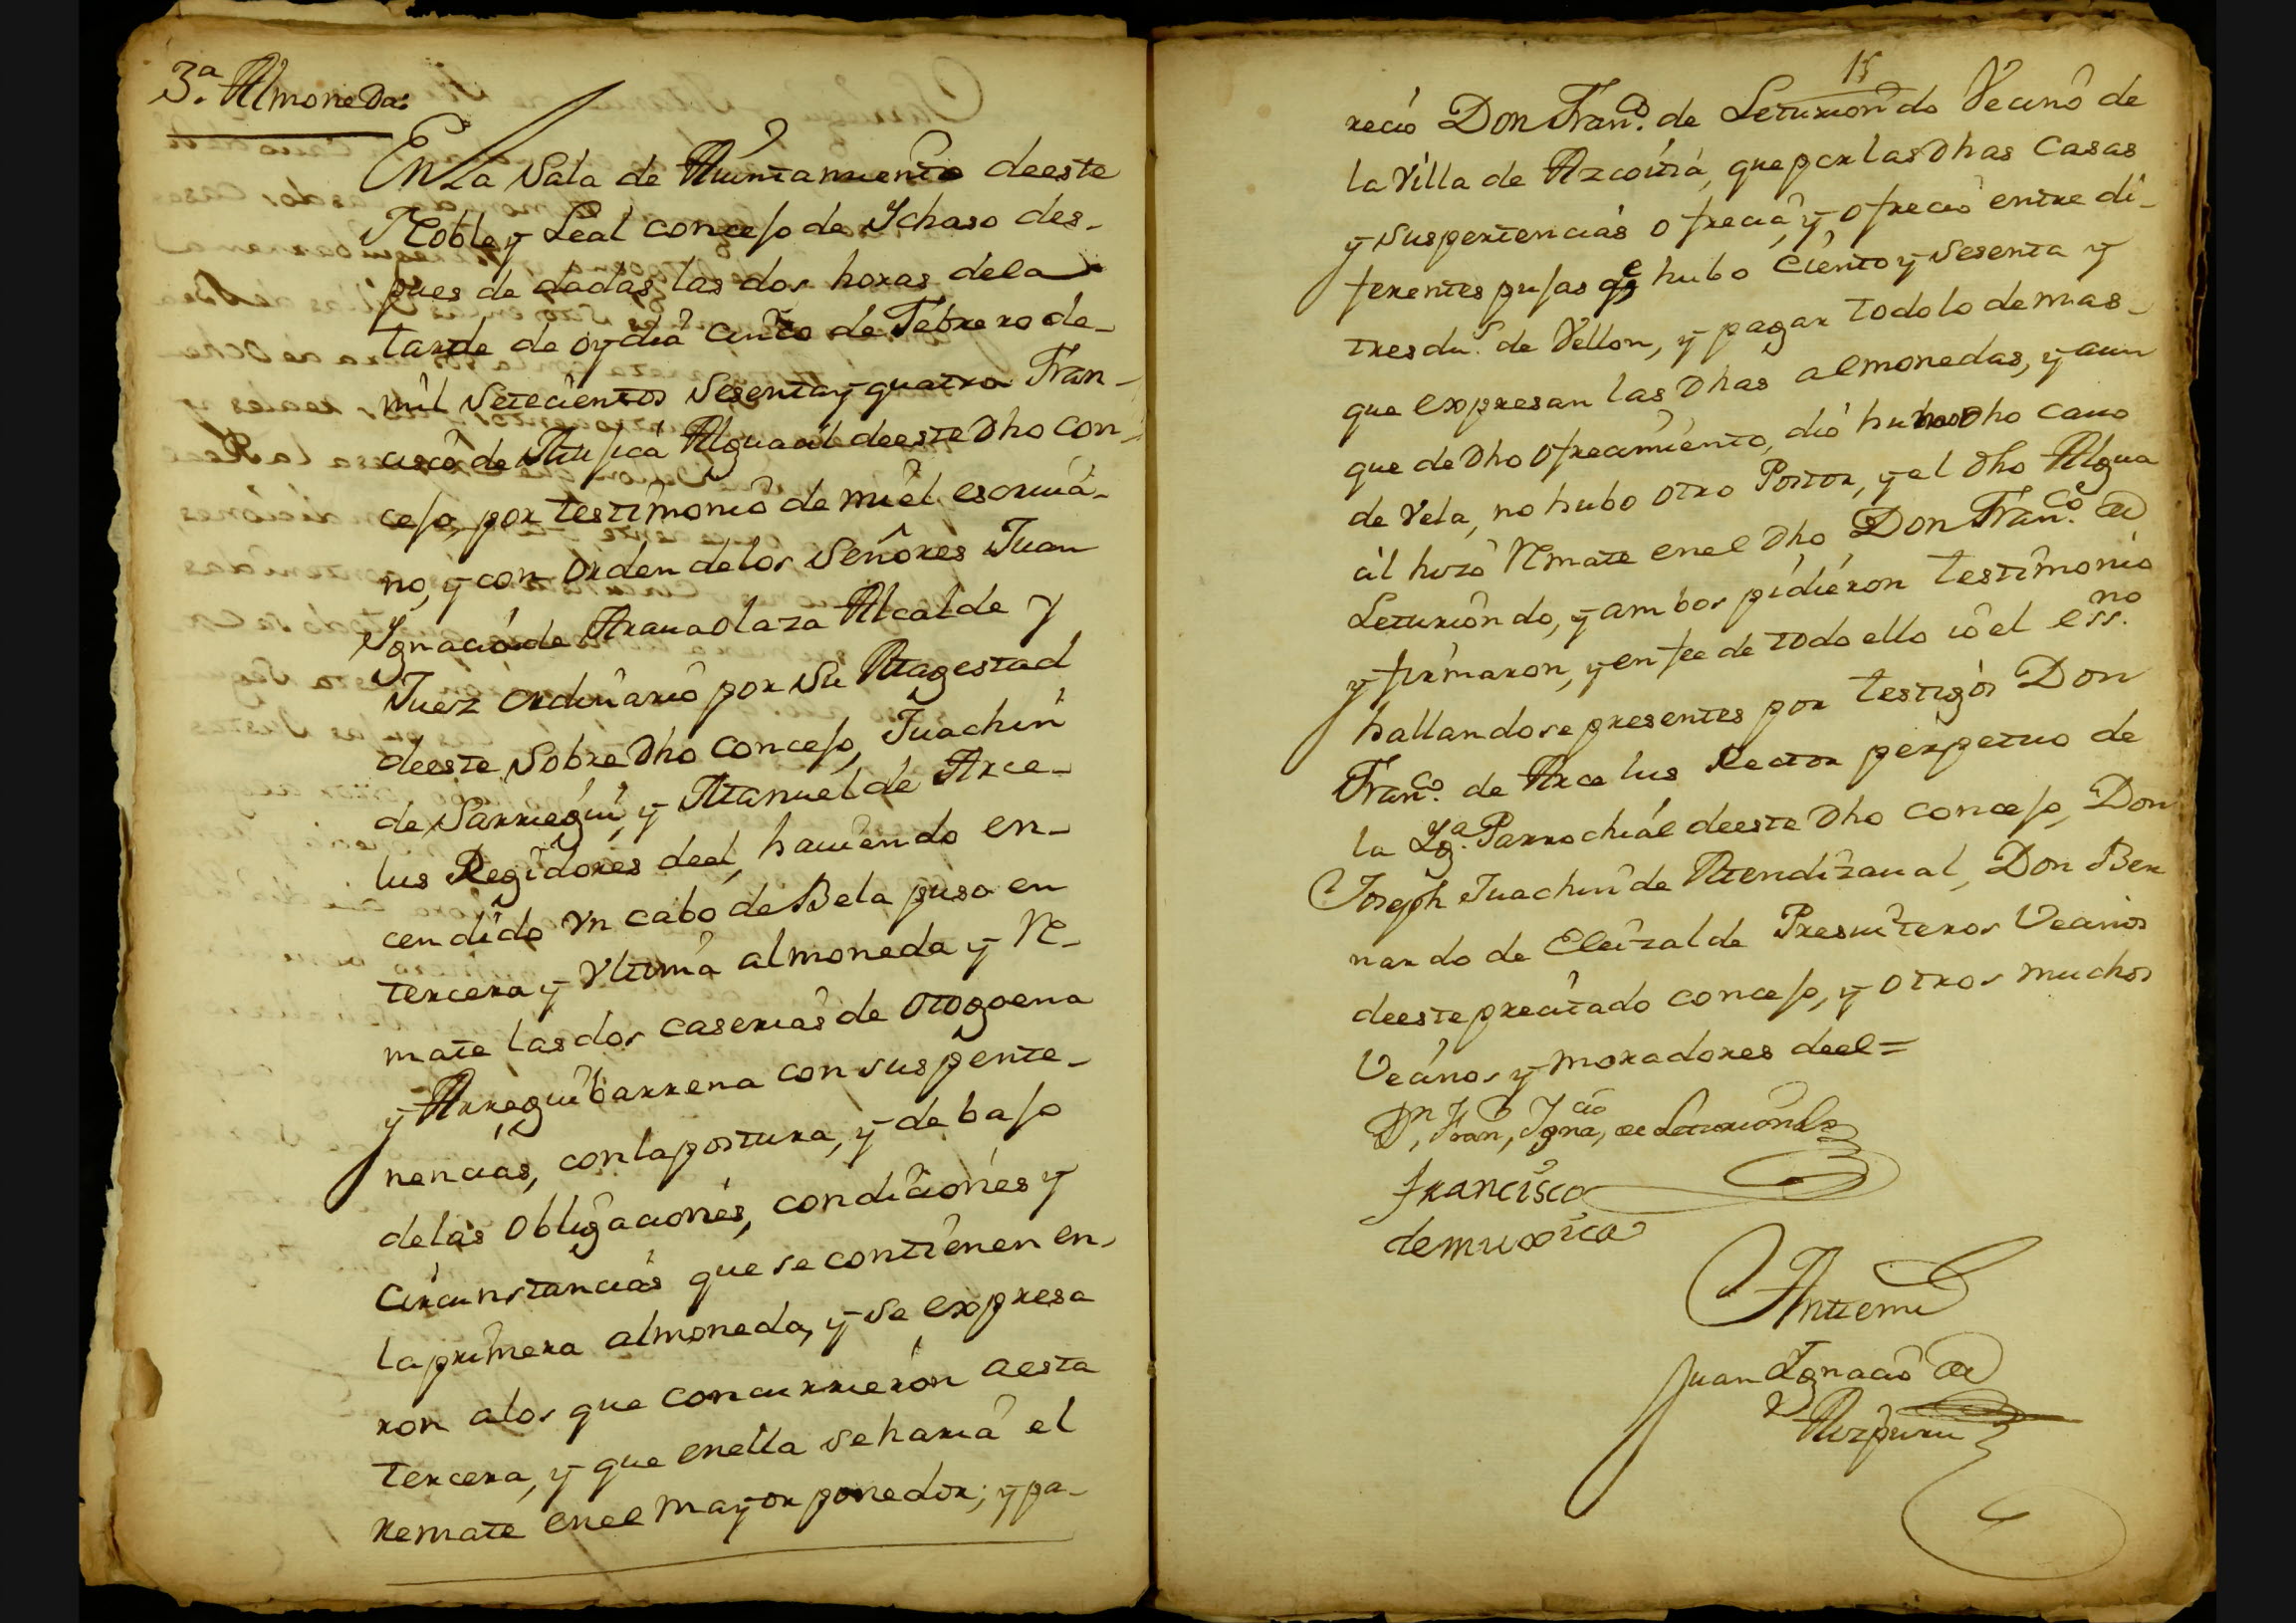 3.ª Almoneda:
En La Sala de Aiuntamiento deeste
Noble y Leal concejo de Ichaso des-
pues de dadas las dos horas dela
tarde de oy dia cinco de Febrero de-
mil setecientos sesenta y quatro Fran-
cisco de Mujica Alguacil deeste Dho con-
cejo, por testimonio de mi el escriua-
no, y con orden delos Señores Juan
Ignacio de Aranaolaza Alcalde y
Juez ordinario por su Magestad
deeste sobre Dho concejo, Juachin
de Sarriegui, y Manuel de Arce-
lus Regidores deel, hauiendo en-
cendido vn cabo de Bela puso en
tercera y vltima almoneda y Re-
mate las dos caserias de otogoena
y Arreguibarrena con sus perte-
nencias, con la postura, y debajo
delas obligaciones, condiciones y
circunstancias que se contienen en-
la primera almoneda, y se expresa
ron alos que concurrieron aesta
tercera, y que enella se haria el
remate enel mayor ponedor; y pa-
15
recio Don Fran.co de Leturiondo Vecino de
la Villa de Azcoitia, que por las Dhas casas
y sus pertencias ofrecia, y ofrecio entre di-
ferentes pujas qe hubo ciento y sesenta y
tres du.s de Vellon, y pagar todo lo demas
que expresan las Dhas almonedas, y aun
que de Dho ofrecimiento, dio humo Dho cauo
de Vela, no hubo otro Postor, y el Dho Algua
cil hizo Remate enel Dho Don Fran.co de
Leturiondo, y ambos pidieron testimonio
y firmaron, y en fee de todo ello io el ess.no
hallandose presentes por testigos Don
Fran.co de Arcelus Rector perpetuo de
la Ig.a Parrochial deeste Dho concejo, Don
Joseph Juachin de Mendizaual, Don Ber
nardo de Eleizalde Presuiteros Vecinos
deeste precitado concejo, y otros muchos
Vecinos y moradores deel=
Dn, Fran, Ignacio, de Leturiondo
francisco
de muxica
Antemi
Juan Ignacio de
Aizpuru